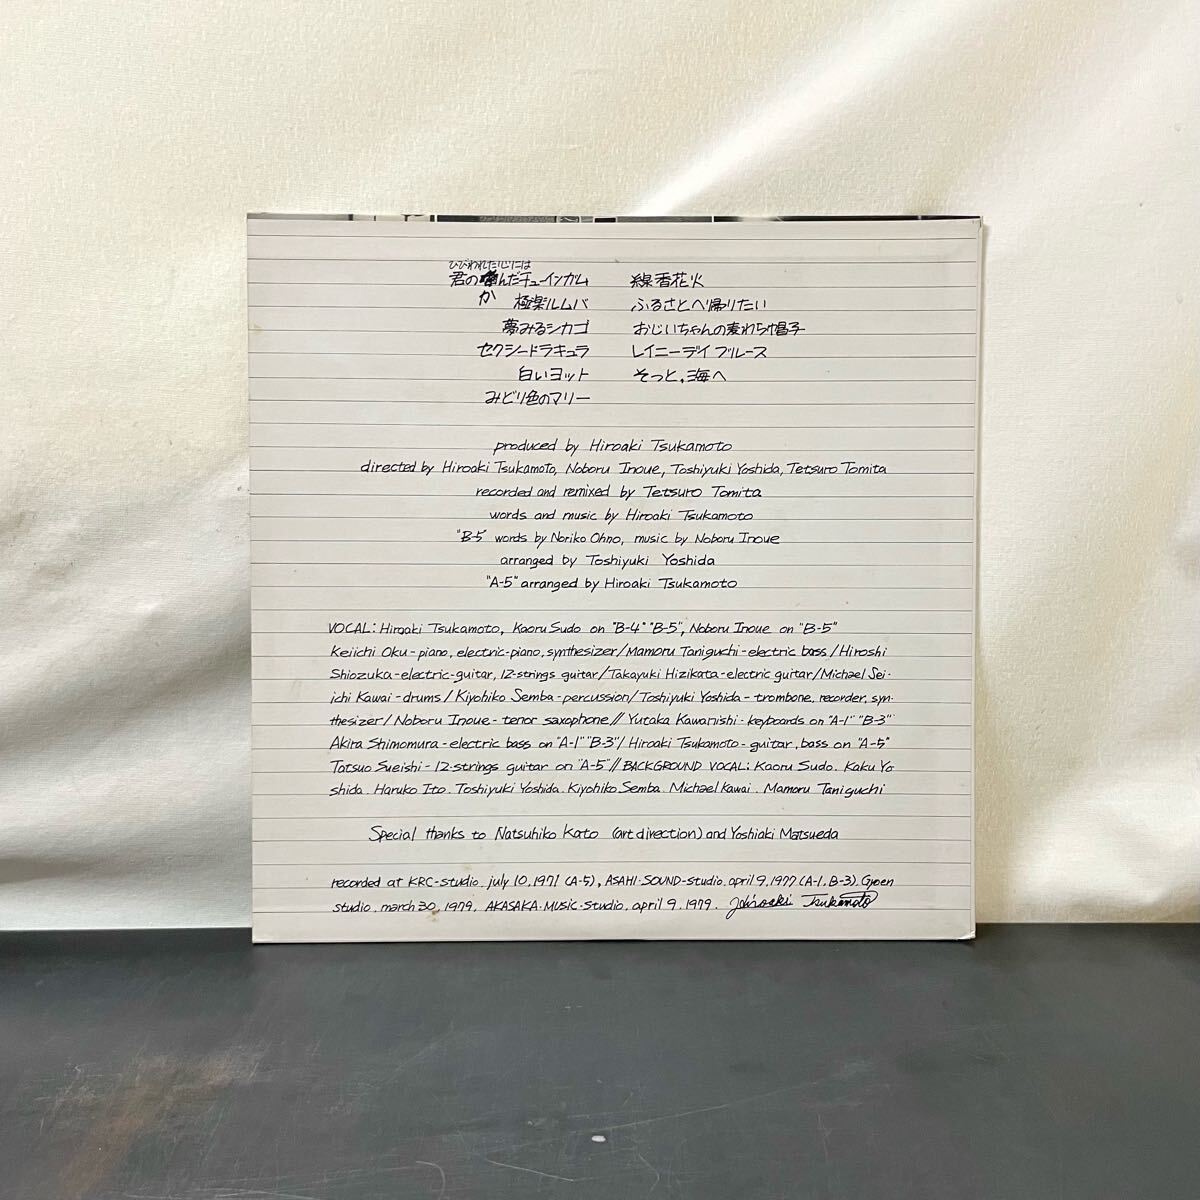 ひびわれた心には
君の噛んだチューインガム 線香花火
か
極楽ルムバ ふるさとへ帰りたい
夢みるシカゴ おじいちゃんの麦わら帽子
セクシードラキュラ レイニーデイ ブルース
白いヨット そっと,海へ
みどり色のマリー
produced by Hiroaki Tsukamoto
directed by Hiroaki Tsukamoto, Noboru Inoue, Toshiyuki Yoshida, Tetsuro Tomita
recorded and remixed by Tetsuro Tomita
words and music by Hiroaki Tsukamoto
"B-5" words by Noriko Ohno, music by Noboru Inoue
arranged by Toshiyuki Yoshida
"A-5" arranged by Hiroaki Tsukamoto
VOCAL: Hiroaki Tsukamoto, Kaoru Sudo on "B-4" "B-5", Noboru Inoue on "B-5"
Keiichi Oku-piano, electric-piano, synthesizer/Mamoru Taniguchi-electric bass/Hiroshi
Shiozuka-electric-guitar, 12-strings guitar/Takayuki Hizikata-electric guitar/Michael Sei-
ichi Kawai-drums/Kiyohiko Semba-percussion/Toshiyuki Yoshida-trombone, recorder, syn-
thesizer/Noboru Inoue-tenor saxophone//Yutaka Kawanishi-keyboards on "A-1" "B-3"
Akira Shimomura-electric bass on "A-1" "B-3"/Hiroaki Tsukamoto-guitar, bass on "A-5"
Tatsuo Sueishi-12-strings guitar on "A-5"//BACKGROUND VOCAL: Kaoru Sudo. Kaku Yo-
shida. Haruko Ito. Toshiyuki Yoshida. Kiyohiko Semba. Michael Kawai. Mamoru Taniguchi
Special thanks to Natsuhiko Kato (art direction) and Yoshiaki Matsueda
recorded at KRC-studio. july 10, 1971 (A-5), ASAHI-SOUND-studio. april 9, 1977 (A-1, B-3). Gyoen
studio. march 30, 1979. AKASAKA-MUSIC-studio, april 9, 1979. Hiroaki Tsukamoto